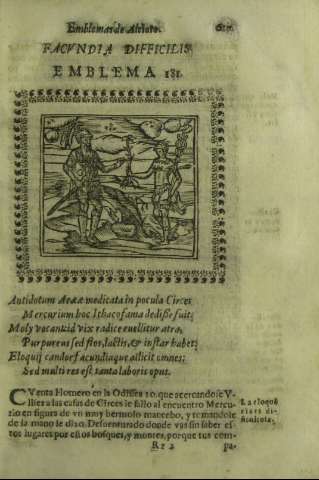 Emblemas de Alciato. 617.
FACVNDIA DIFFICILIS
EMBLEMA 181.
Antidotum Aeææ medicata in pocula Circes
Mercurium hoc Ithaco fama dedisse fuit;
Moly vocant: id vix radice euellitur atra,
Purpureus sed flos, lactis, & instar habet;
Eloquij candor facundiaque allicit omnes:
Sed multi res est tanta laboris opus.
CVenta Homero en la Odissea 10, que acercandose V-
lisses a las casas de Circes le salio al encuentro Mercu-
rio en figura de vn muy hermoso mancebo, y tomandole
de la mano le dixo. Desuenturado donde vas sin saber es-
tos lugares por estos bosques, y montes, porque tus com-
La eloquē
cia es di-
ficultosa.
Rr 2 pa-